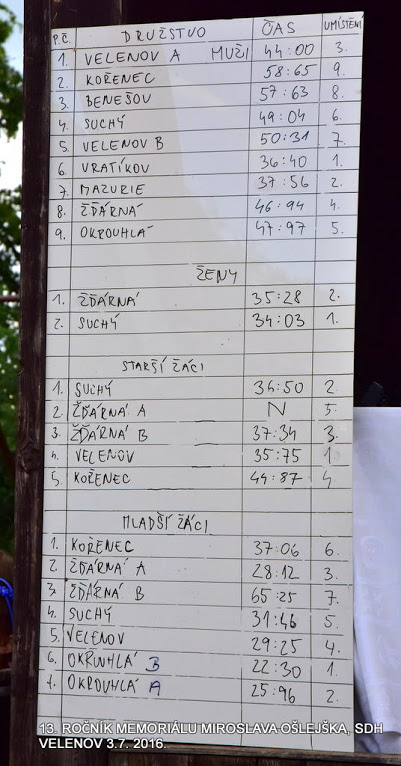 P.Č. DRUŽSTVO ČAS UMÍSTĚNÍ
1. VELENOV A MUŽI 44:00 3.
2. KOŘENEC 58:65 9.
3. BENEŠOV 57:63 8.
4. SUCHÝ 49:04 6.
5. VELENOV B 50:31 7.
6. VRATÍKOV 36:40 1.
7. MAZURIE 37:56 2.
8. ŽĎÁRNÁ 46:94 4.
9. OKROUHLÁ 47:97 5.
ŽENY
1. ŽĎÁRNÁ 35:28 2.
2. SUCHÝ 34:03 1.
STARŠÍ ŽÁCI
1. SUCHÝ 36:50 2.
2. ŽĎÁRNÁ A N 5.
3. ŽĎÁRNÁ B 37:34 3.
4. VELENOV 35:75 1.
5. KOŘENEC 44:87 4
MLADŠÍ ŽÁCI
1. KOŘENEC 37:06 6.
2. ŽĎÁRNÁ A 28:12 3.
3. ŽĎÁRNÁ B 65:25 7.
4. SUCHÝ 31:46 5.
5. VELENOV 29:25 4.
6. OKRUHLÁ B 22:30 1.
7. OKROUHLÁ A 25:96 2.
13. ROČNÍK MEMORIÁLU MIROSLAVA OŠLEJŠKA, SDH
VELENOV 3.7. 2016.